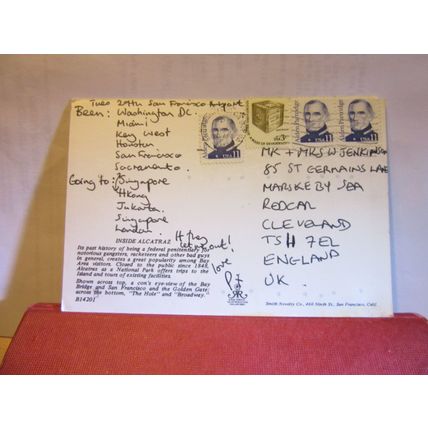 Tues 29th San Francisco Airport
Been: Washington DC.
Miami
Key West
Houston
San Francisco
Sacramento.
Going to: Singapore
HKong
Jakarta
Singapore
London
If they
let me out!
love
P.
INSIDE ALCATRAZ
Its past history of being a federal penitentiary for
notorious gangsters, racketeers and other bad guys
in general, creates a great popularity among Bay
Area visitors. Closed to the public since 1848,
Alcatraz as a National Park offers trips to the
Island and tours of existing facilities.
Shown across top, a con's eye-view of the Bay
Bridge and San Francisco and the Golden Gate;
across the bottom, "The Hole" and "Broadway."
B14201
Alden Partridge
USA 11
Alden Partridge
USA 11
Alden Partridge
USA 11
MR + MRS W JENKINSON
85 ST GERMAINS LANE
MARSKE BY SEA
REDCAR
CLEVELAND
TS11 7EL
ENGLAND
UK.
Smith Novelty Co., 460 Ninth St., San Francisco, Calif.